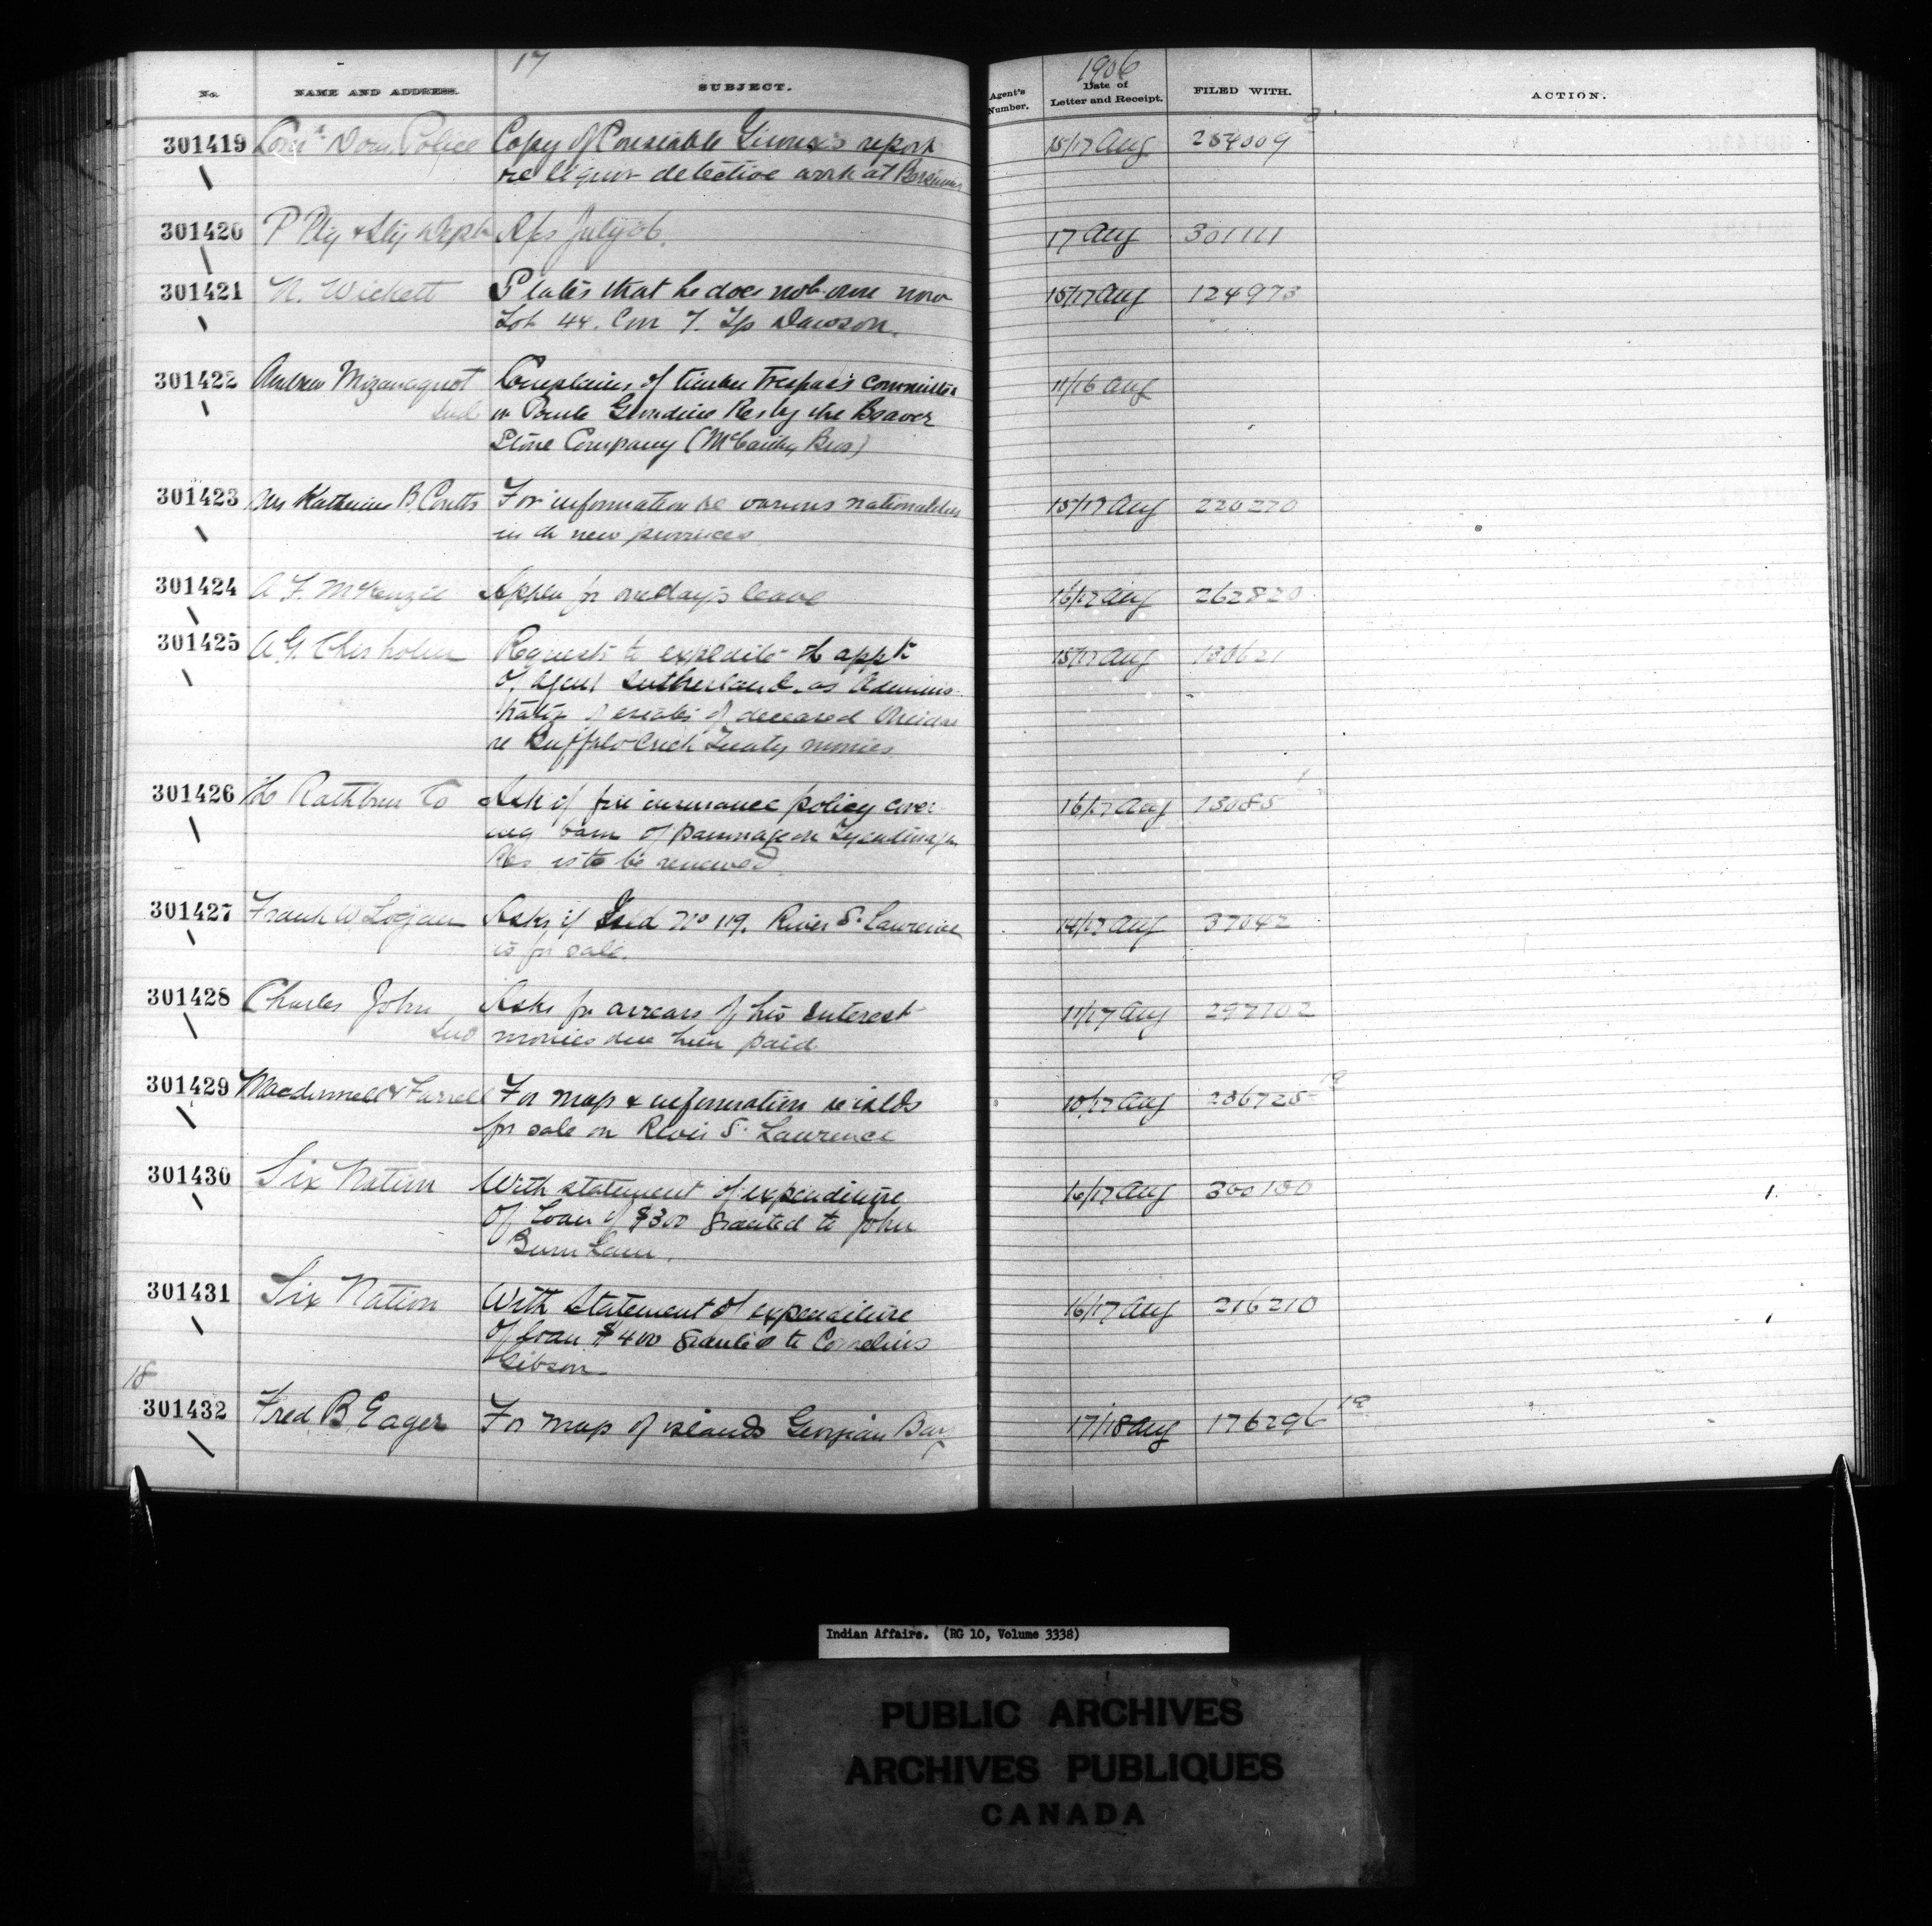 17
1906
No. NAME AND ADDRESS. SUBJECT. Agent's Number. Date of Letter and Receipt. FILED WITH. ACTION.
301419 Dom. Police Copy of Constable report 15/17 Aug 254009
re liquor detective work at
301420 P Ptg & Sty Dept July 06. 17 Aug 301111
301421 N. Wickett States that he does not own now 15/17 Aug 124973
Lot 44. Con 7. Tp Dawson.
301422 Andrew Complains of timber trespass committed 11/16 Aug
Ind on Res by the Beaver
Stone Company (McCarthy Bros)
301423 Mrs Katherine B. Coutts For information re various nationalities 15/17 Aug 220270
in th new provinces
301424 A. F. McKenzie Appln for one day's leave 16/17 Aug 262820
301425 A. G. Chisholm Requests to expedite th appt 15/17 Aug
of Agent Sutherland as Adminis-
trator of estates of deceased Oneidas
re Buffalo Creek Treaty monies
301426 Th Rathbun Co Ask if fire insurance policy cover- 16/17 Aug 13085
ing barn of parsonage on Tyendinaga
Res is to be renewed
301427 Frank W. Logan Asks if Isld No 119. River St Lawrence 14/17 Aug 37042
is for sale.
301428 Charles John Asks for arrears of his interest 11/17 Aug 297102
Ind monies due him paid
301429 Macdonnell & Farrell For map & information re islds 10/17 Aug 236725 19
for sale on River St Lawrence
301430 Six Nation With statement of expenditure 16/17 Aug 300130
of loan of $300 granted to John
Burnham.
301431 Six Nation With statement of expenditure 16/17 Aug 216210
of loan $400 granted to Cornelius
Gibson
18
301432 Fred B Eager For map of islands Georgian Bay 17/18 Aug 176296 19
Indian Affairs. (RG 10, Volume 3338)
PUBLIC ARCHIVES
ARCHIVES PUBLIQUES
CANADA